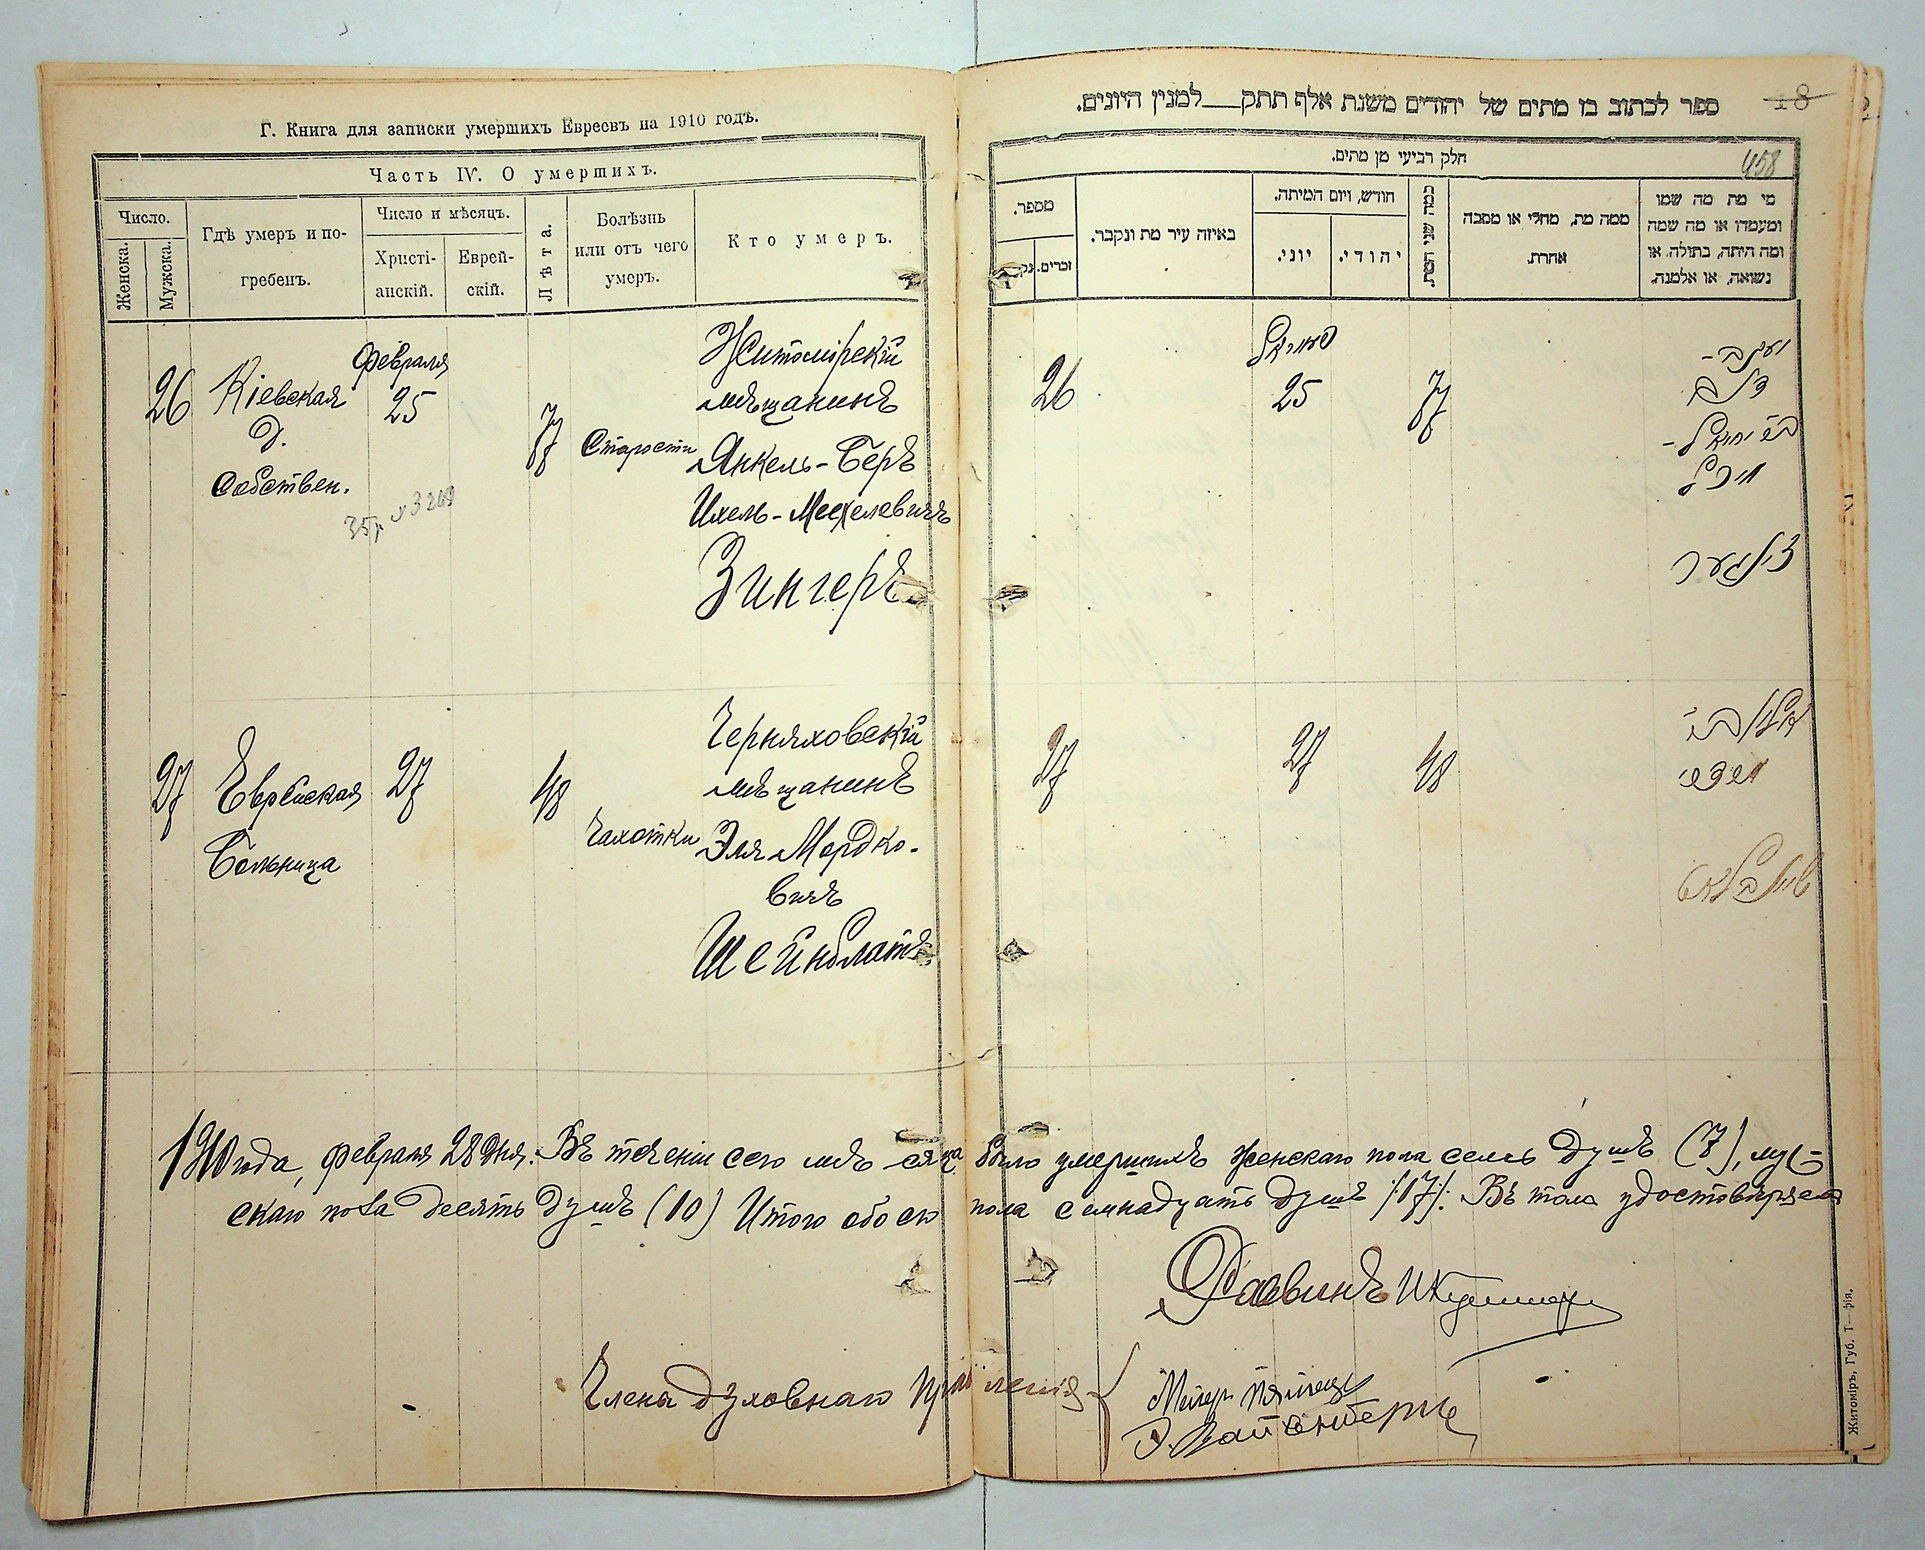 Г. Книга для записки умершихъ Евреевъ на 1910 годъ.
Часть IV. О умершихъ.
Число.
Женска.
Мужска.
Гдѣ умеръ и по-
гребенъ.
Число и мѣсяцъ.
Христі-
анскій.
Еврей-
скій.
Лѣта.
Болѣзнь
или отъ чего
умеръ.
Кто умеръ.
26
Кіевская
д.
Собствен.
Февраля
25
77
Старости
Житомірскій
мѣщанинъ
Янкель-Беръ
Ихель-Мехелевичъ
Зингеръ
27
Еврейская
Больница
27
48
Чахотки
Черняховскій
мѣщанинъ
Эля Мордко-
вичъ
Шейнблатъ
ספר לכתוב בו מתים של יהודים משנת אלף תתק למנין היונים.
18
458
חלק רביעי מן מתים.
מספר.
זכרים.
באיזה עיר מת ונקבר.
חודש, ויום המיתה.
יוני.
יהודי.
כמה שני המת.
ממה מת, מחלי או מסבה
אחרת.
מי מת מה שמו
ומעמדו או מה שמה
ומה היתה, בתולה, או
נשואה, או אלמנה.
26
25
77
יעקב-
בער
מיכל
זינגער
27
27
48
שיינבלאט
1910 года, февраля 28 дня. Въ теченіи сего мѣсяца было умершихъ женскаго пола семь душъ (7), муж-
скаго пола десять душъ (10) Итого обоего пола семнадцать душъ /:17/: Въ томъ удостовѣряемъ
Раввинъ
Члены духовнаго правленія
Житоміръ, Губ. Т—фія.